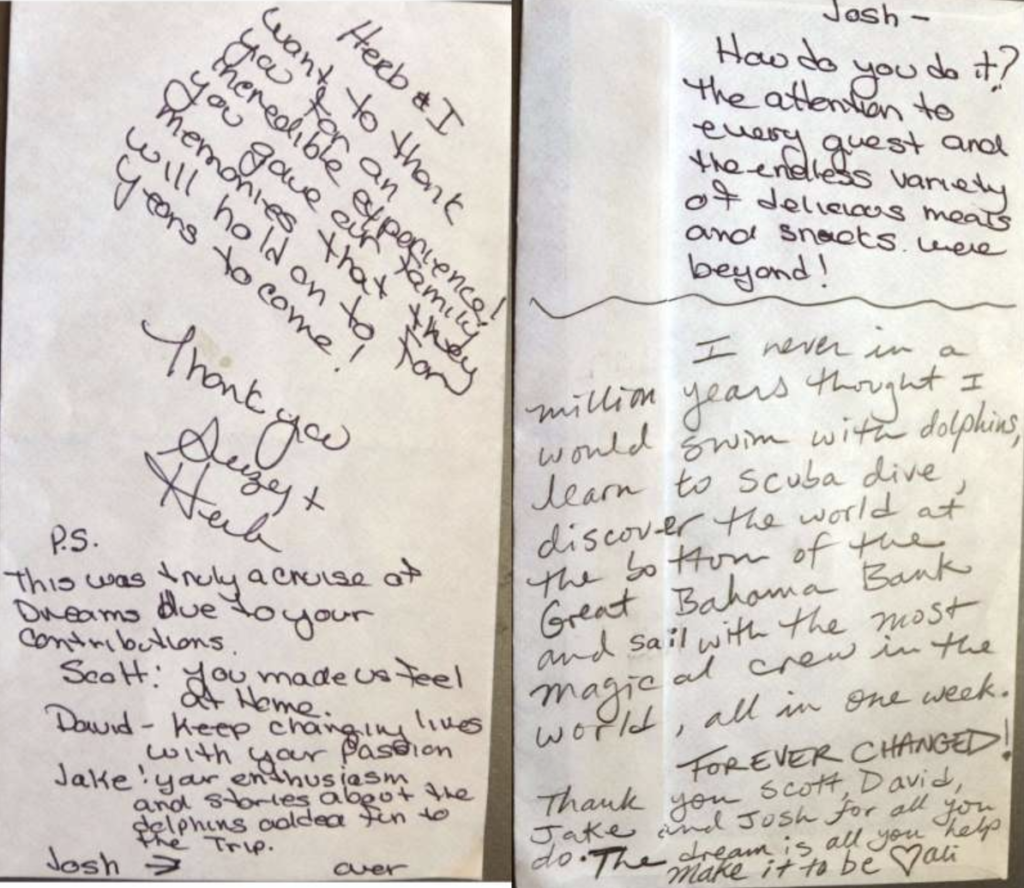 Herb & I
want to thank
you for an
incredible experience!
you gave our family
memories that they
will hold on to for
years to come!
Thank you
Suzey +
Herb
P.S.
This was truly a cruise of
Dreams due to your
contributions.
Scott: you made us feel
at Home.
David - keep changing lives
with your Passion
Jake! your enthusiasm
and stories about the
dolphins added fun to
the Trip.
Josh → over
Josh -
How do you do it?
The attention to
every guest and
the endless variety
of delicious meals
and snacks were
beyond!
I never in a
million years thought I
would swim with dolphins,
learn to scuba dive,
discover the world at
the bottom of the
Great Bahama Bank
and sail with the most
magical crew in the
world, all in one week.
FOREVER CHANGED!
Thank you Scott, David,
Jake and Josh for all you
do. The dream is all you help
make it to be ♡ali